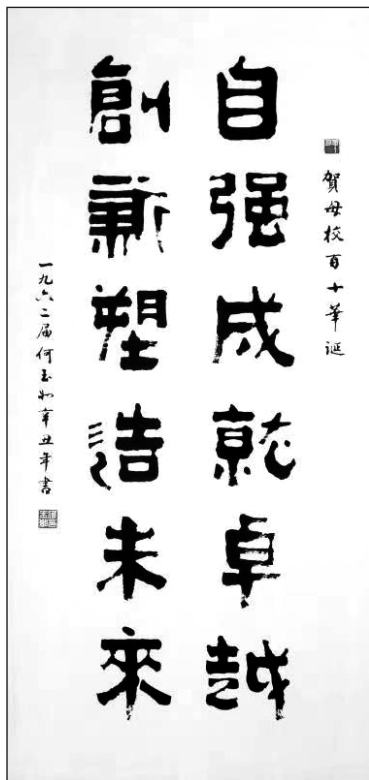 賀母校百十華誕
自强成就卓越
創新塑造未來
一九六二届何玉如辛丑年書